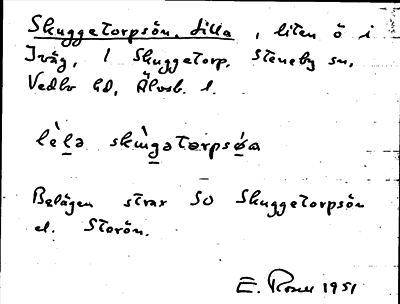 Skuggetorpsön, Lilla, liten ö i
Iväg, l Skuggetorp, Steneby sn,
Vedbo hd, Älvsb. l.
lèlə skùngətərpsøa
Belägen strax SO Skuggetorpsön
el. Storön.
E. Rosell 1951